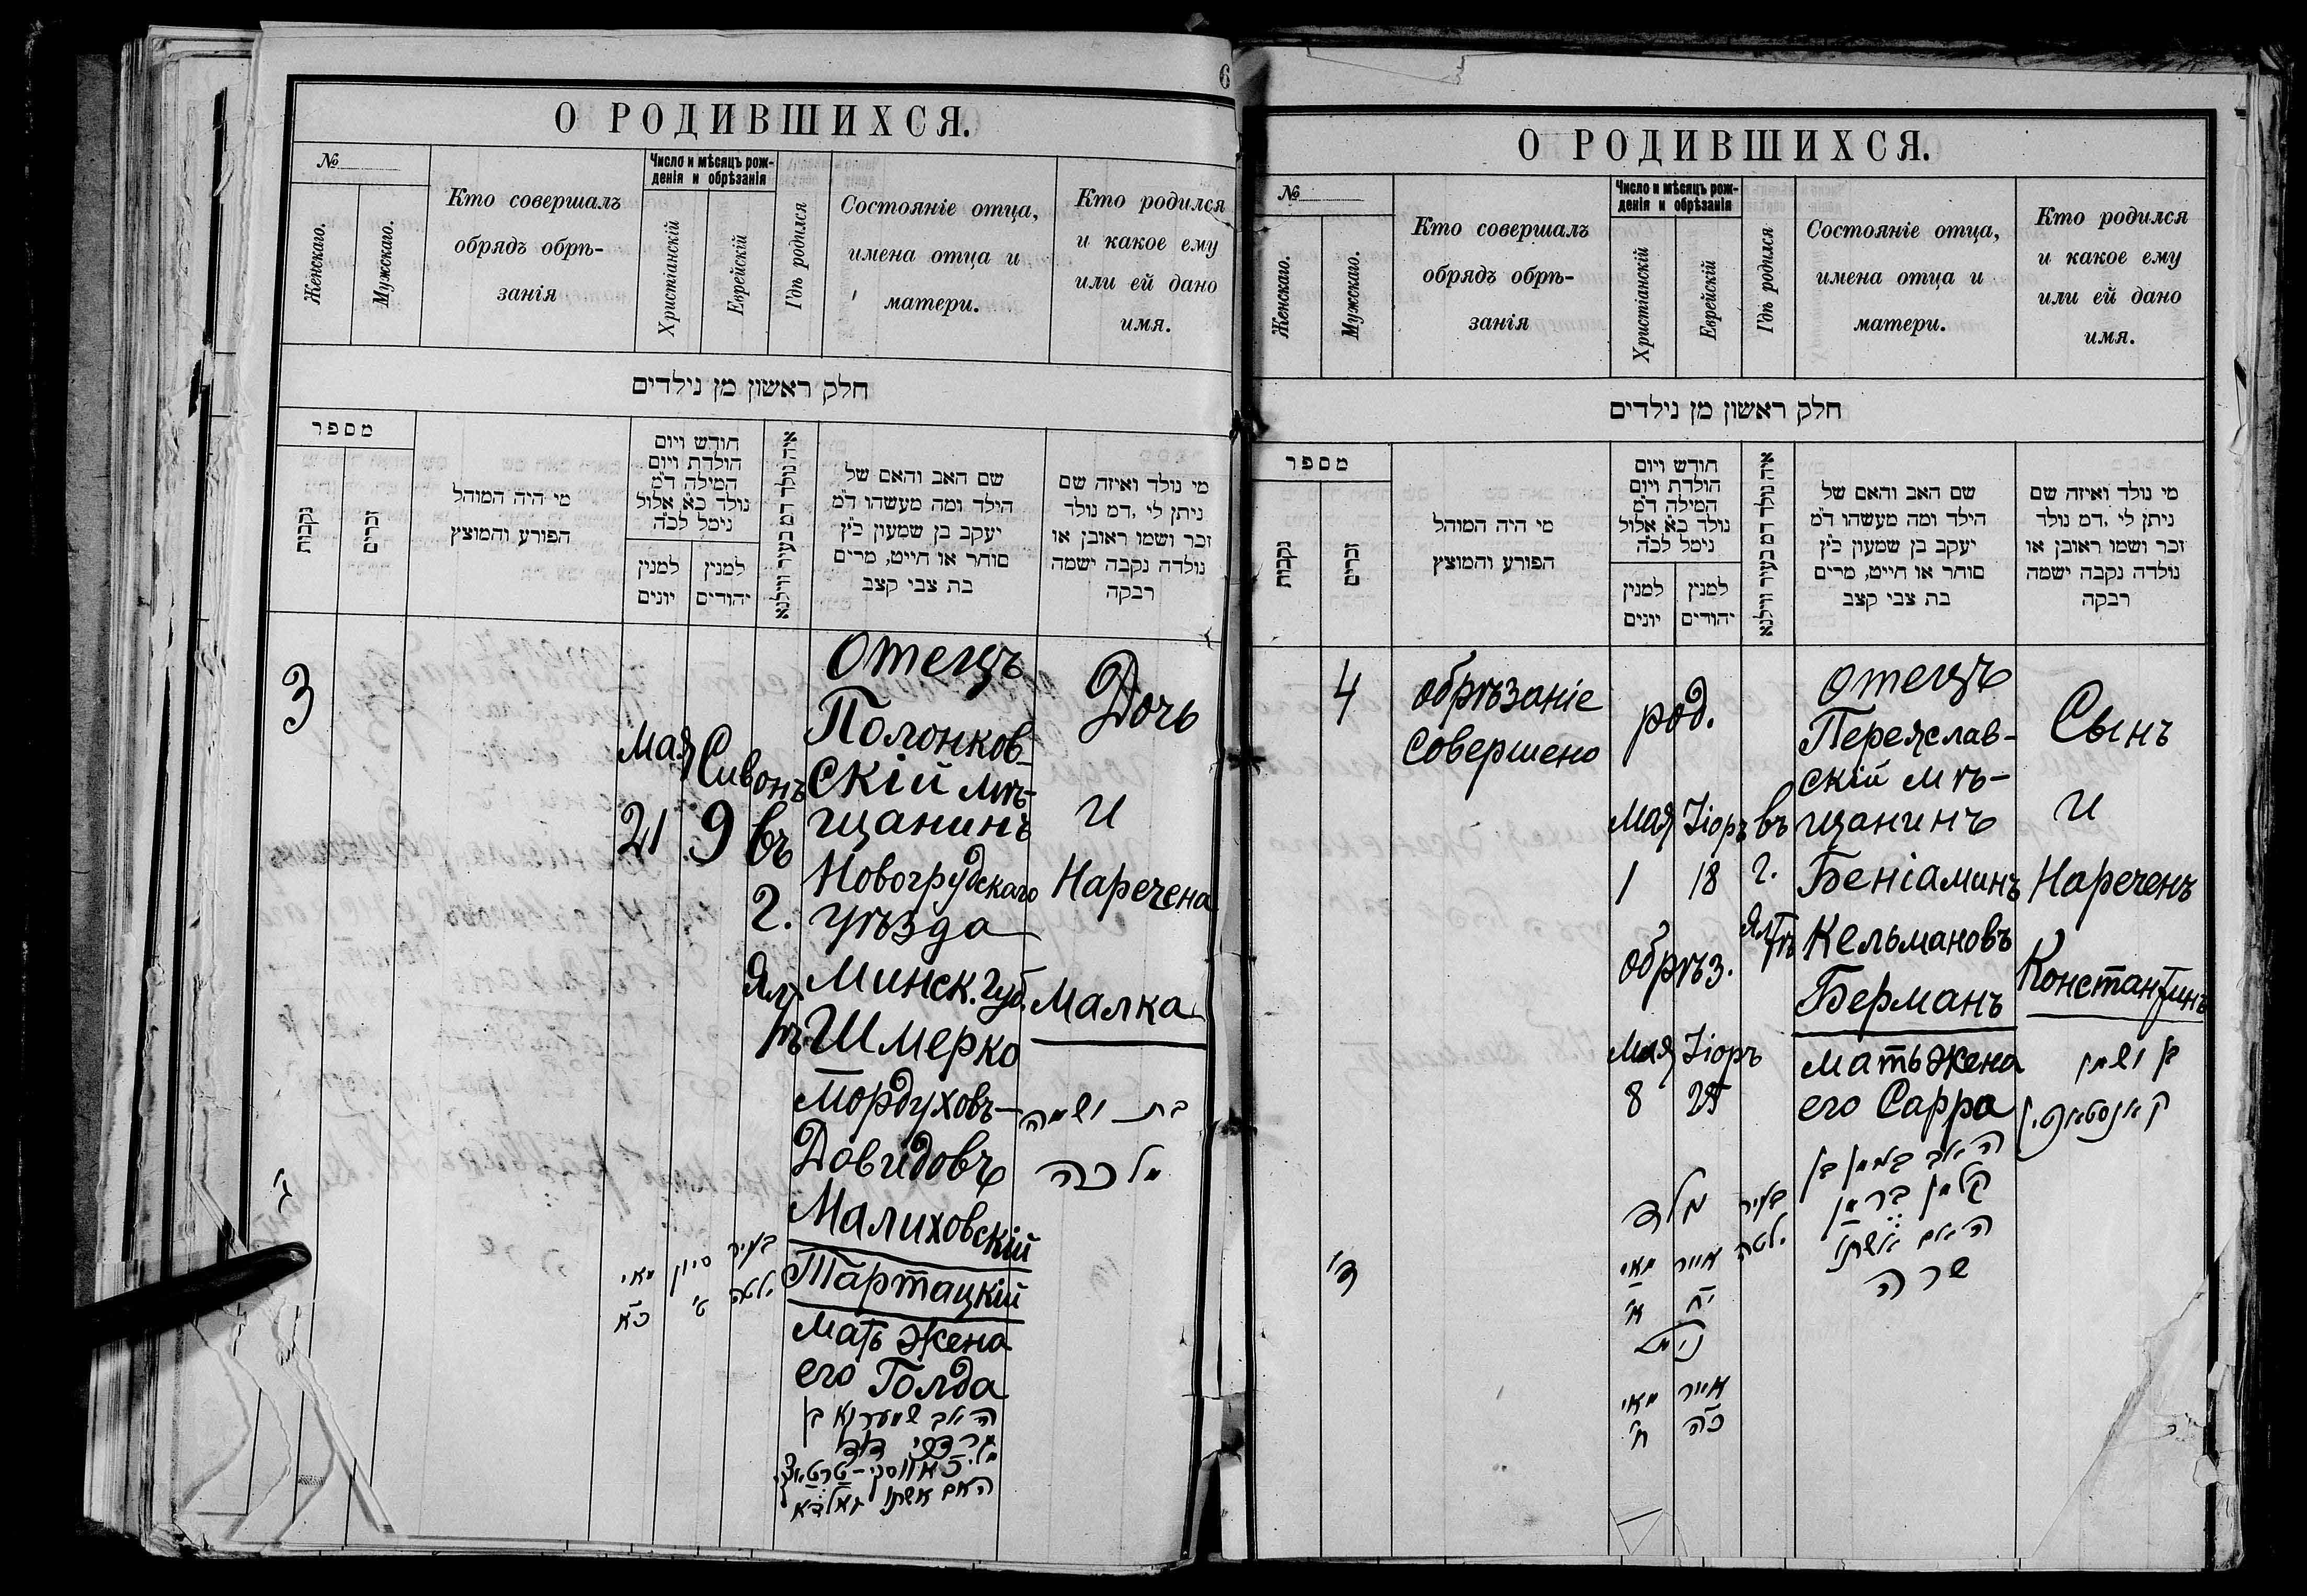 6
О РОДИВШИХСЯ.
№
Женскаго.
Мужскаго.
Кто совершалъ
обрядъ обрѣ-
занія
Число и мѣсяцъ рож-
денія и обрѣзанія
Христіанскій
Еврейскій
Гдѣ родился
Состояніе отца,
имена отца и
матери.
Кто родился
и какое ему
или ей дано
имя.
חלק ראשון מן נילדים
מספר
נקבות
זכרים
מי היה המוהל
הפורע והמוצץ
חודש ויום
הולדת ויום
המילה ד"מ
נולד כ"א אלול
נימל לכ"ה
למנין
יונים
למנין
יהודים
איה נולד דמ בעיר ווילנא
שם האב והאם של
הילד ומה מעשהו ד"מ
יעקב בן שמעון כ"ץ
סוחר או חייט, מרים
בת צבי קצב
מי נולד ואיזה שם
ניתן לי, דמ נולד
זכר ושמו ראובן או
נולדה נקבה ישמה
רבקה
3
Мая
21
Сивонъ
9
въ
г.
Ял
тѣ
Отецъ
Полонков-
скій мѣ-
щанинъ
Новогрудскаго
уѣзда
Минск. губ.
Шмерко
Мордуховъ-
Довидовъ
Малиховскій
Тартацкій
Мать жена
его Голда
Дочь
и
Наречена
Малка
בת ושמה
מלכה
ג'
מאי
כ"א
סיון
ט'
בעיר
ילטה
האב שמערקא בן
מרדכי דוד
האם אשתו גאלדא
О РОДИВШИХСЯ.
№
Женскаго.
Мужскаго.
Кто совершалъ
обрядъ обрѣ-
занія
Число и мѣсяцъ рож-
денія и обрѣзанія
Христіанскій
Еврейскій
Гдѣ родился
Состояніе отца,
имена отца и
матери.
Кто родился
и какое ему
или ей дано
имя.
חלק ראשון מן נילדים
מספר
נקבות
זכרים
מי היה המוהל
הפורע והמוצץ
חודש ויום
הולדת ויום
המילה ד"מ
נולד כ"א אלול
נימל לכ"ה
למנין
יונים
למנין
יהודים
איה נולד דמ בעיר ווילנא
שם האב והאם של
הילד ומה מעשהו ד"מ
יעקב בן שמעון כ"ץ
סוחר או חייט, מרים
בת צבי קצב
מי נולד ואיזה שם
ניתן לי, דמ נולד
זכר ושמו ראובן או
נולדה נקבה ישמה
רבקה
4
обрѣзаніе
Совершено
род.
Мая Іюръ
1 18
обрѣз.
Мая Іюръ
8 25
въ
г.
Ял
тѣ
Отецъ
Переяслав-
скій мѣ-
щанинъ
Беніаминъ
Кельмановъ
Берманъ
Мать жена
его Сарра
Сынъ
и
Нареченъ
Константинъ
בן ושמו
קאנסטאנטין
האב בנימן בן
קלמן ברמן
האם אשתו
שרה
ד'
נולד
מאי אייר
א' י"ח
נימול
מאי אייר
ח' כ"ה
בעיר
ילטה